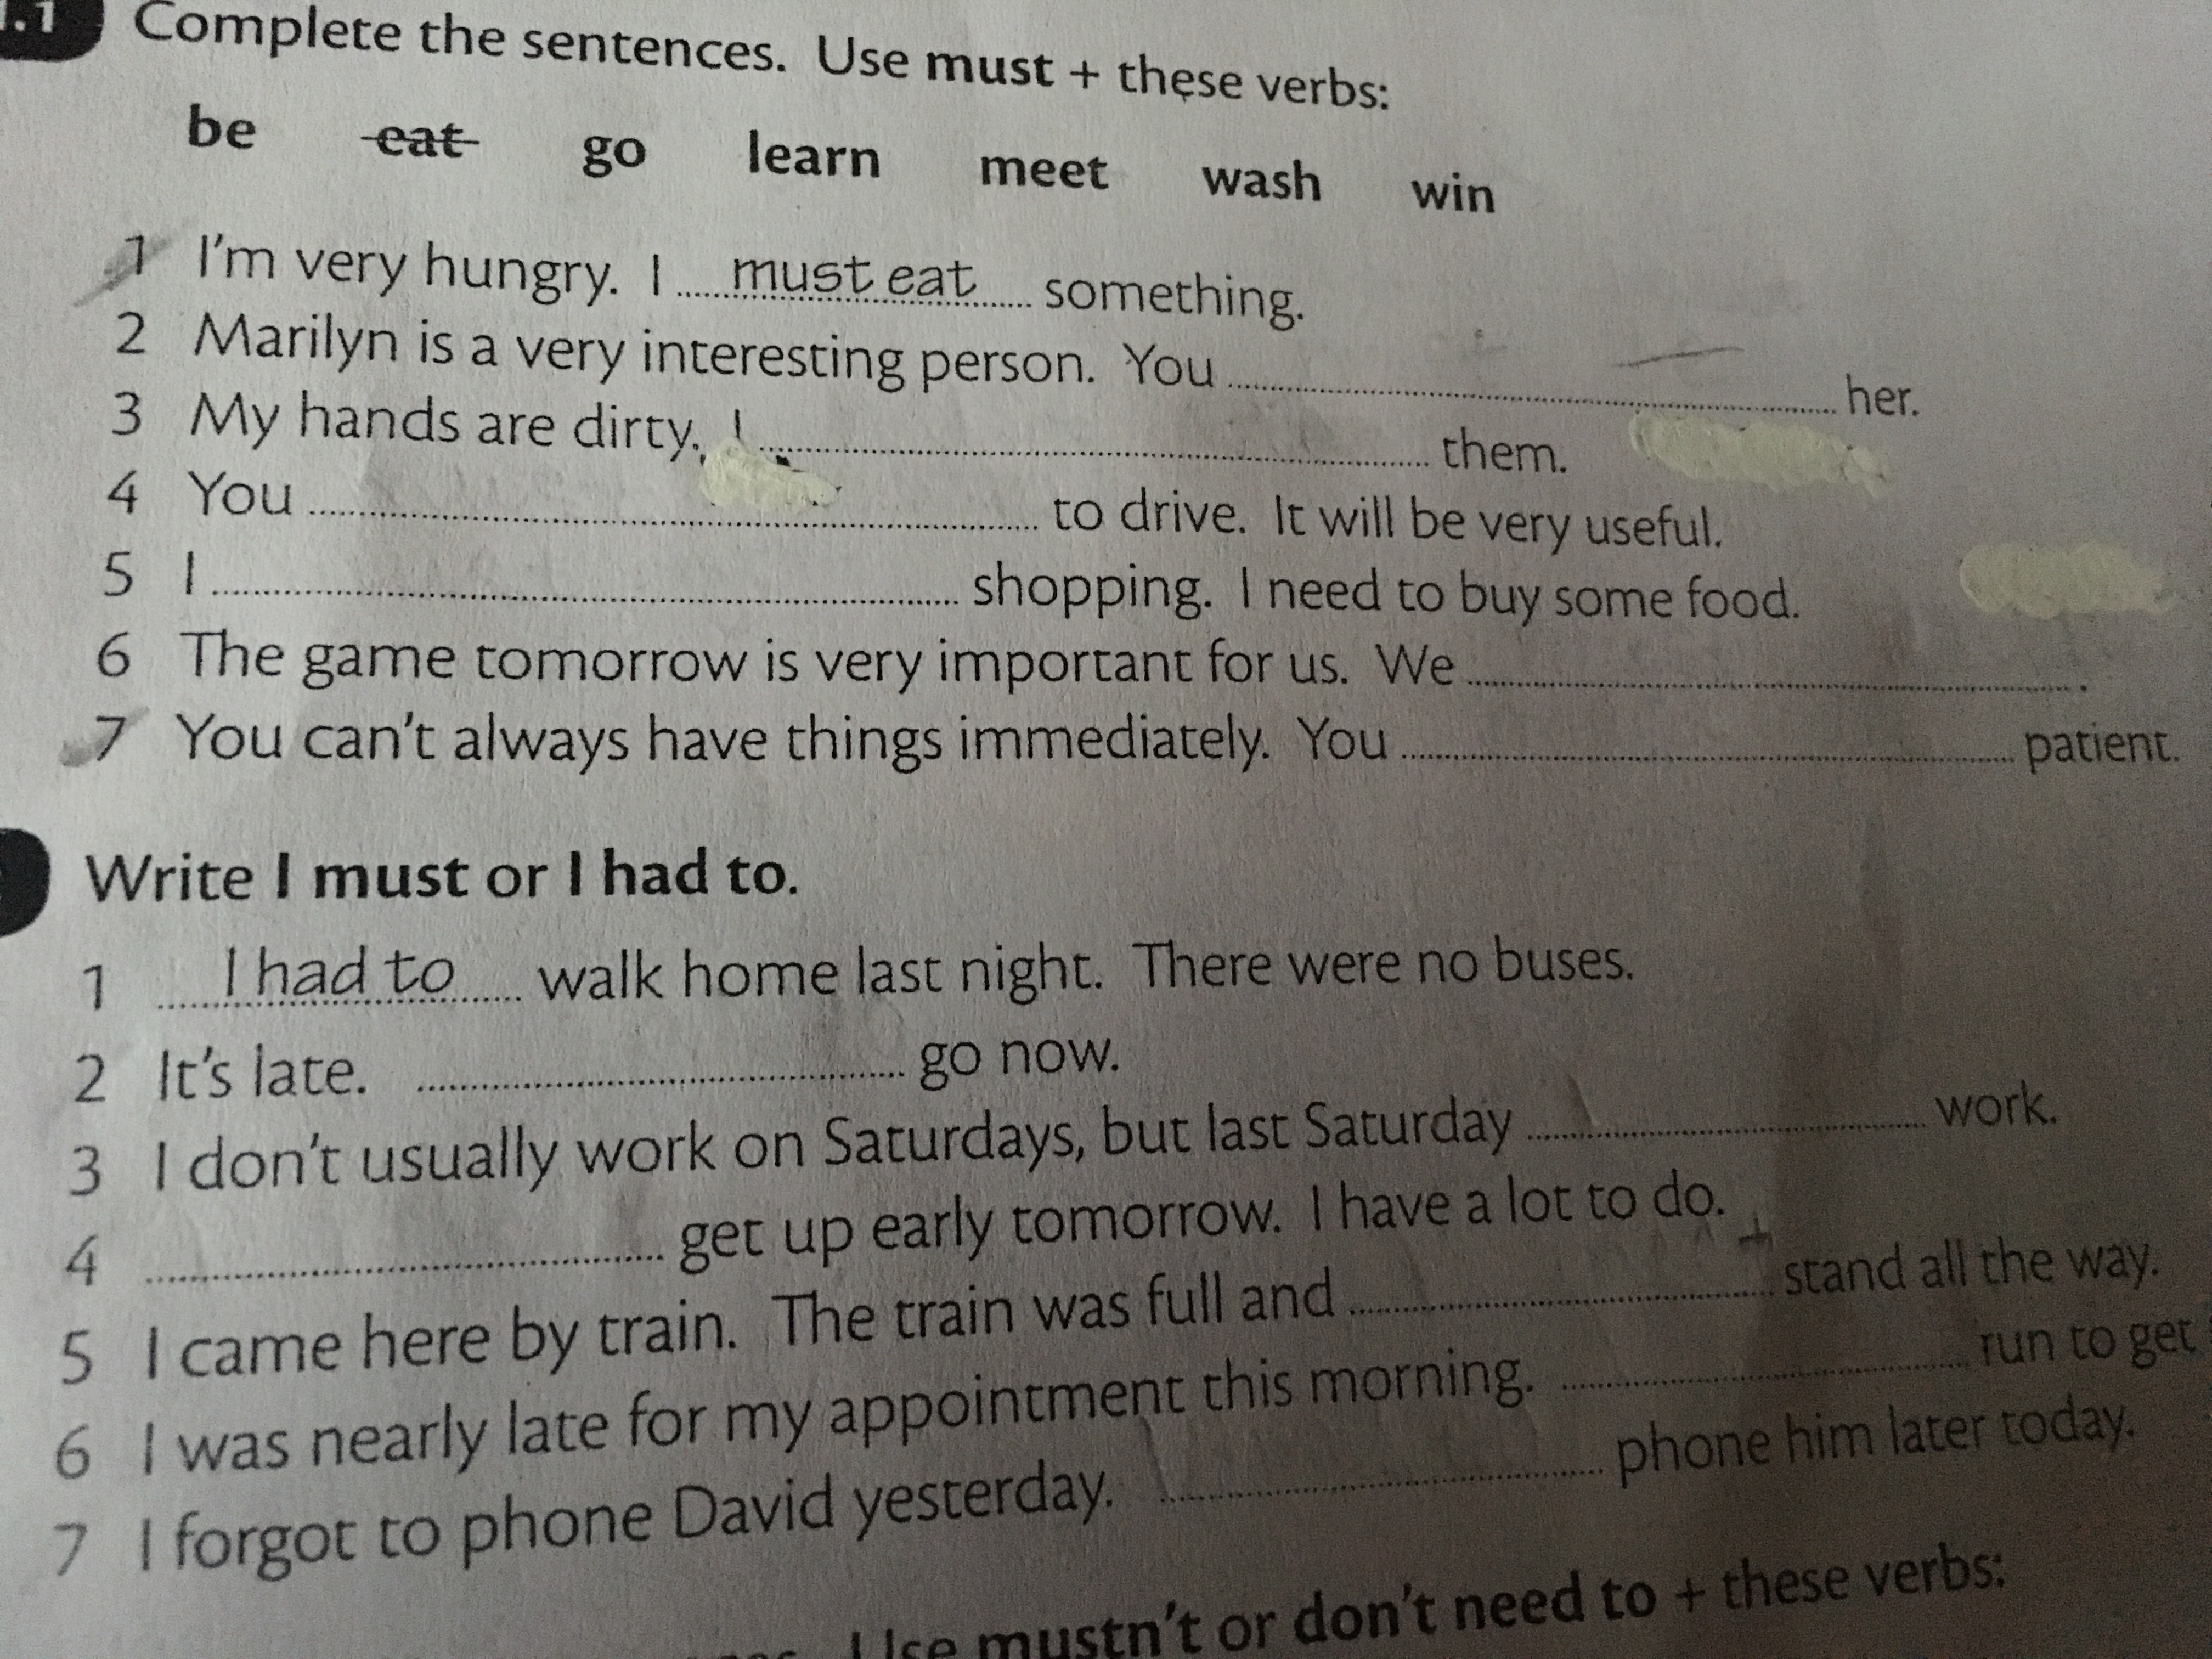 .1 Complete the sentences. Use must + these verbs:
be eat go learn meet wash win
1 I'm very hungry. I must eat something.
2 Marilyn is a very interesting person. You ........ her.
3 My hands are dirty. I ........ them.
4 You ........ to drive. It will be very useful.
5 I ........ shopping. I need to buy some food.
6 The game tomorrow is very important for us. We ........ .
7 You can't always have things immediately. You ........ patient.
Write I must or I had to.
1 I had to walk home last night. There were no buses.
2 It's late. ........ go now.
3 I don't usually work on Saturdays, but last Saturday ........ work.
4 ........ get up early tomorrow. I have a lot to do.
5 I came here by train. The train was full and ........ stand all the way.
6 I was nearly late for my appointment this morning. ........ run to get
7 I forgot to phone David yesterday. ........ phone him later today.
Use mustn't or don't need to + these verbs: